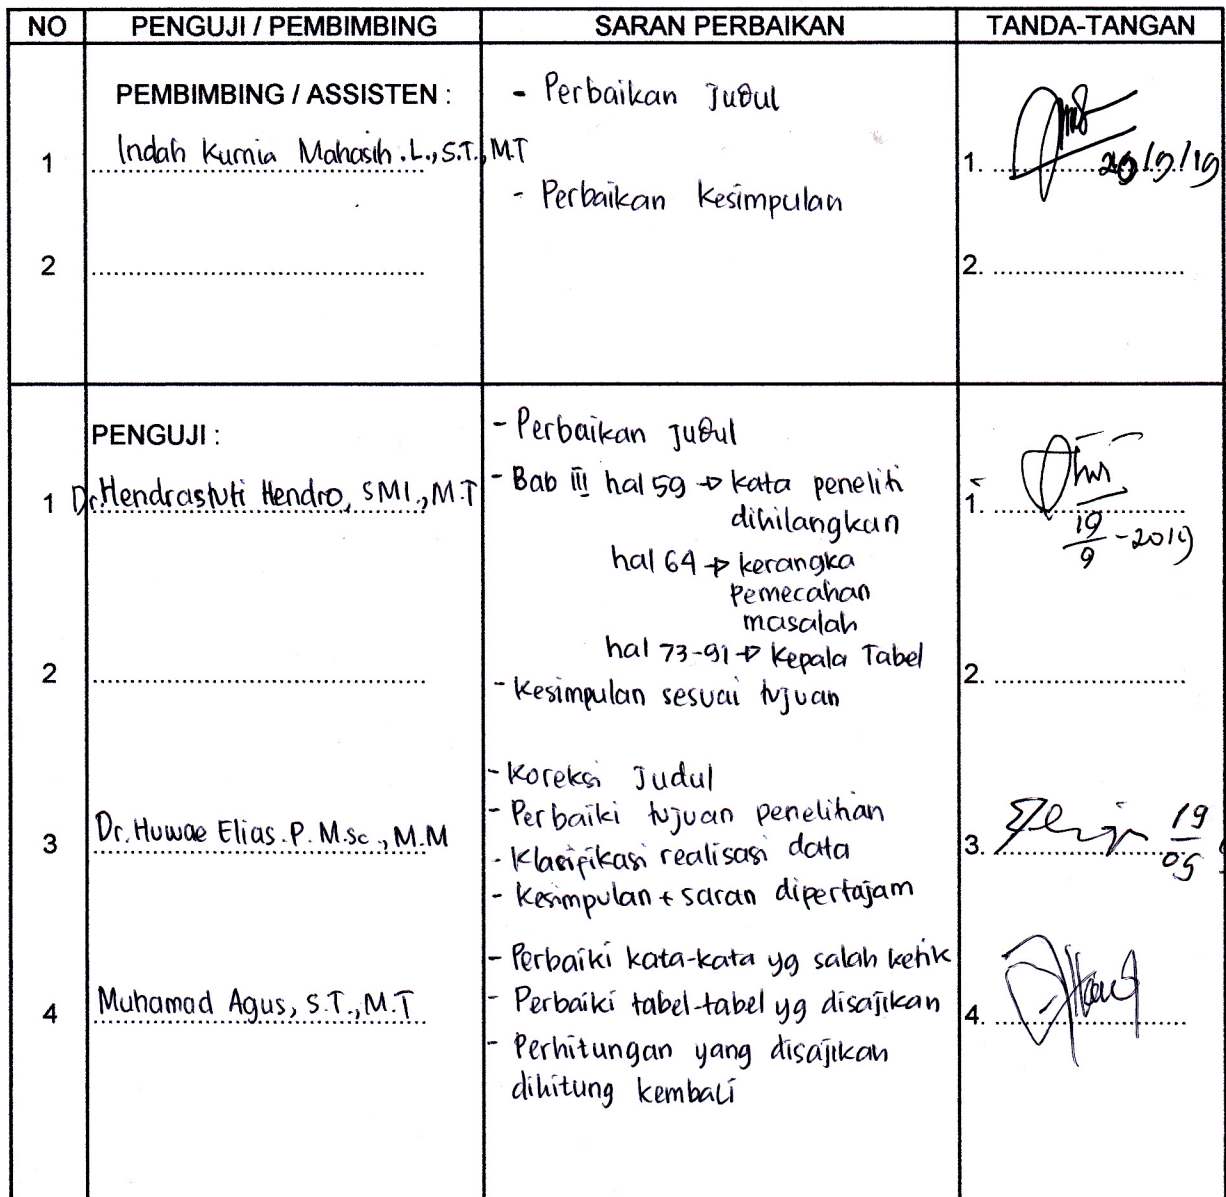 NO PENGUJI / PEMBIMBING SARAN PERBAIKAN TANDA-TANGAN
PEMBIMBING / ASSISTEN :
- Perbaikan Judul
1 Indah Kurnia Mahasih .L., S.T., M.T
1. 20/9/19
- Perbaikan kesimpulan
2
2.
PENGUJI :
- Perbaikan Judul
1 Dr. Hendrastuti Hendro, SMI., M.T
- Bab III hal 59 → kata peneliti
dihilangkan
1. 19/9 - 2019
hal 64 → kerangka
pemecahan
masalah
hal 73-91 → Kepala Tabel
2
- Kesimpulan sesuai tujuan
2.
3 Dr. Huwae Elias. P. M.sc., M.M
- Koreksi Judul
- Perbaiki tujuan penelitian
- Klasifikasi realisasi data
- Kesimpulan + saran dipertajam
3. 19/09
4 Muhamad Agus, S.T., M.T
- Perbaiki kata-kata yg salah ketik
- Perbaiki tabel-tabel yg disajikan
- Perhitungan yang disajikan
dihitung kembali
4.